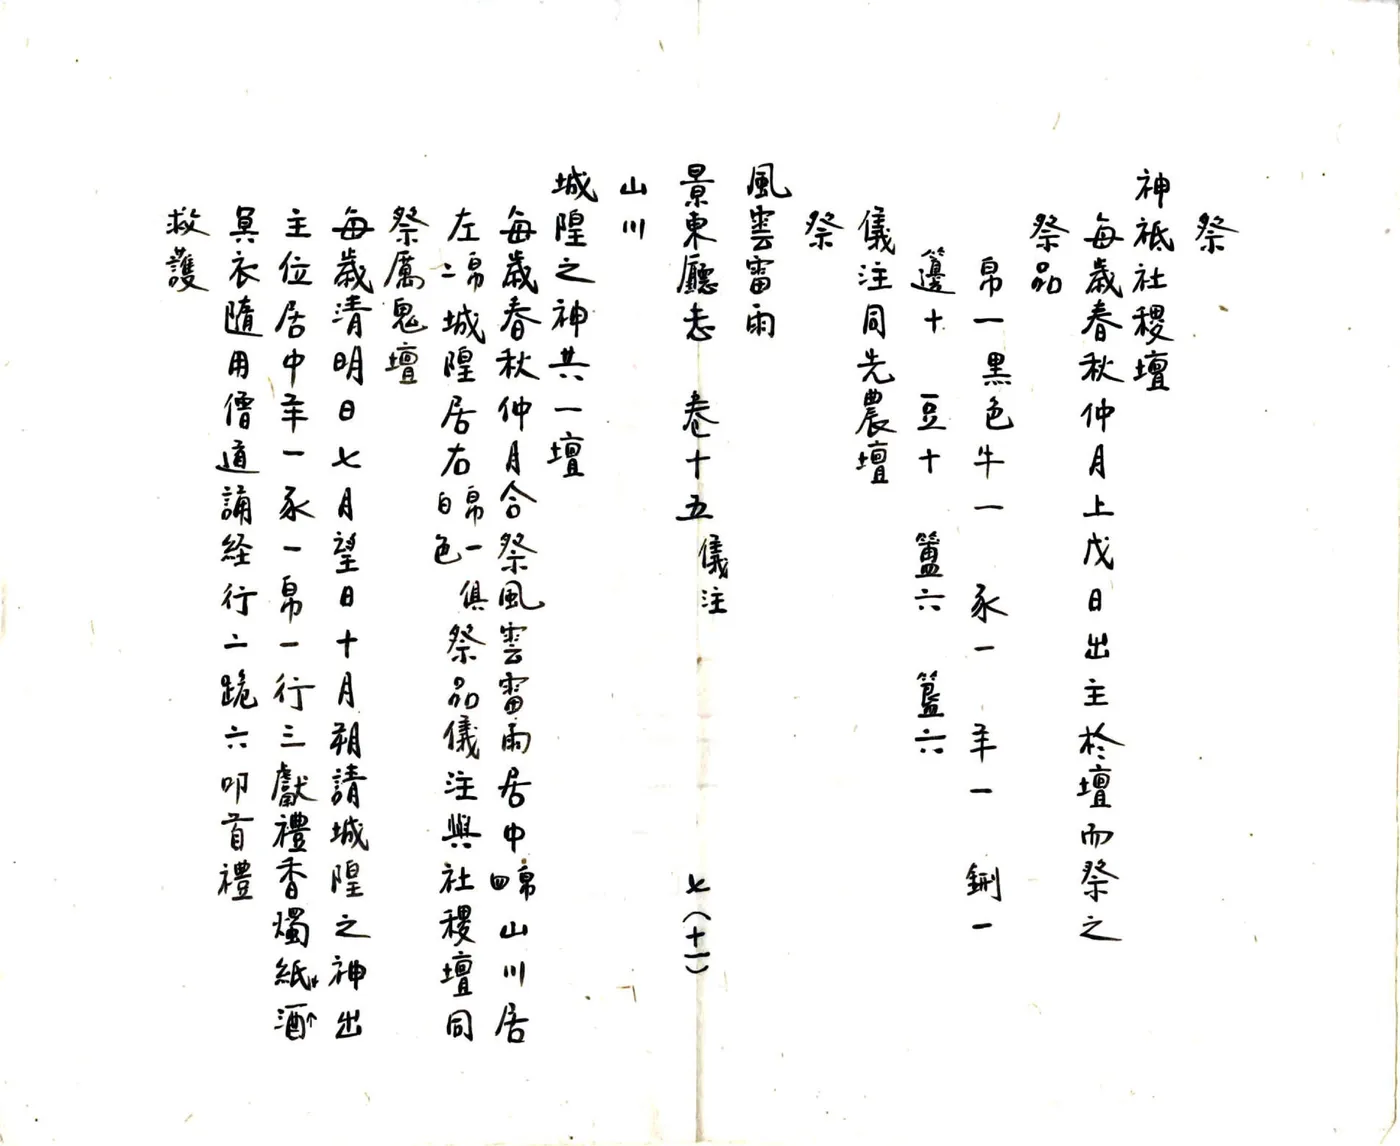 祭
神祗社稷壇
每歲春秋仲月上戊日出主於壇而祭之
祭品
帛一黑色牛一 豕一 羊一 鉶一
籩十 豆十 簠六 簋六
儀注同先農壇
祭
風雲雷雨
景東廳志 卷十五 儀注 七(十一)
山川
城隍之神共一壇
每歲春秋仲月合祭風雲雷雨居中帛四山川居
左帛二城隍居右帛一俱白色祭品儀注與社稷壇同
祭厲鬼壇
每歲清明日七月望日十月朔請城隍之神出
主位居中羊一豕一帛一行三獻禮香燭紙酒
冥衣隨用僧道誦経行二跪六叩首禮
救護